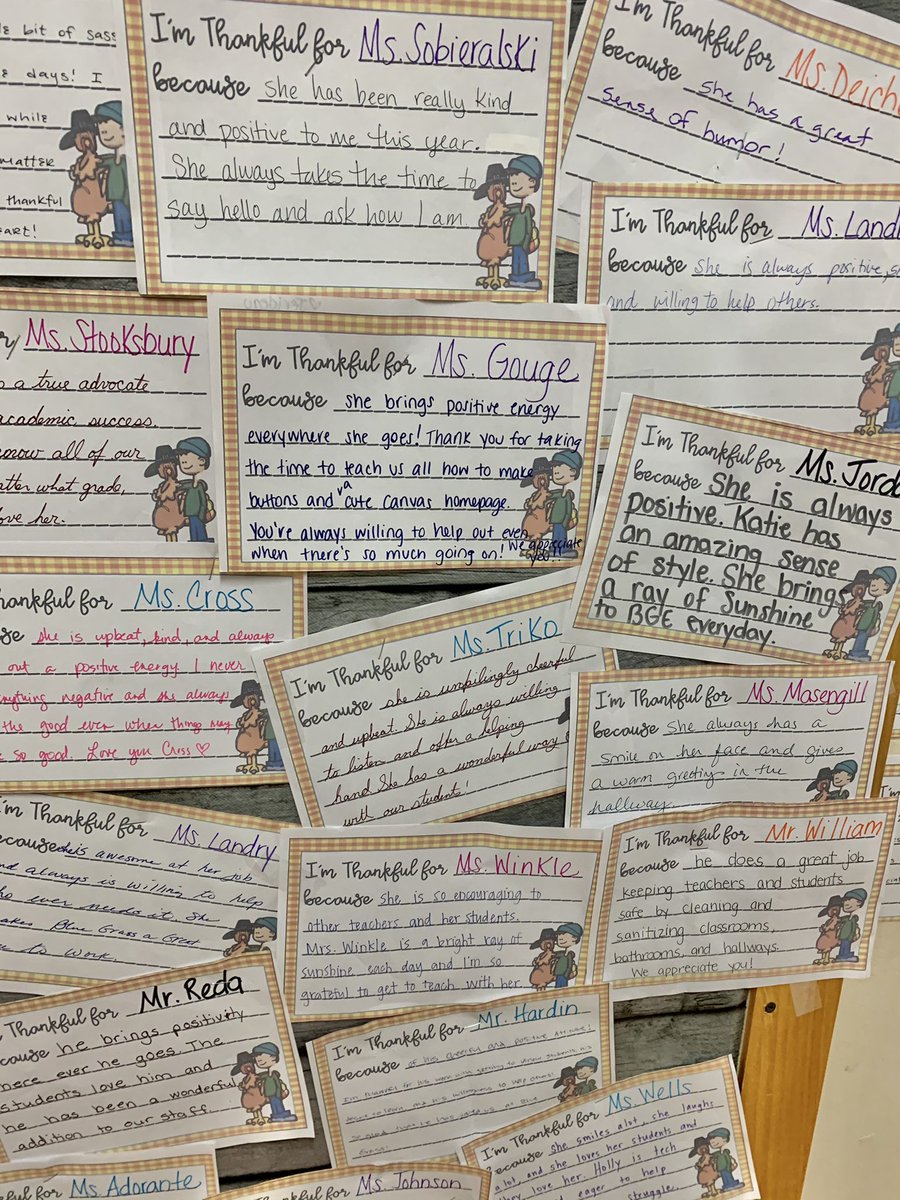 bit of sass
days! I
while
matter
thankful
I'm Thankful for Ms. Sobieralski
because She has been really kind
and positive to me this year.
She always takes the time to
say hello and ask how I am
I'm Thankful for Ms. Deich
because she has a great
sense of humor!
I'm Thankful for Ms. Land
because she is always positive,
and willing to help others.
Ms. Stooksbury
a true advocate
academic success.
know all of our
what grade,
love her.
I'm Thankful for Ms. Gouge
because she brings positive energy
everywhere she goes! Thank you for taking
the time to teach us all how to make
buttons and a cute canvas homepage.
You're always willing to help out even
when there's so much going on! We appreciate
you!!
I'm Thankful for Ms. Jord
because She is always
positive. Katie has
an amazing sense
of style. She brings
a ray of Sunshine
to BGE everyday.
hankful for Ms. Cross
she is upbeat, kind, and always
out a positive energy. I never
anything negative and she always
the good even when things may
so good. Love you Cross ♡
I'm Thankful for Ms. Triko
because she is unfailingly cheerful
and upbeat. She is always willing
to listen and offer a helping
hand. She has a wonderful way
with our students!
I'm Thankful for Ms. Masengill
because She always has a
smile on her face and gives
a warm greeting in the
hallway.
I'm Thankful for Ms. Landry
because she's awesome at her job
and always is willing to help
who ever needs it. She
makes Blue Grass a Great
to work.
I'm Thankful for Ms. Winkle
because She is so encouraging to
other teachers and her students.
Mrs. Winkle is a bright ray of
sunshine each day and I'm so
grateful to get to teach with her.
I'm Thankful for Mr. William
because he does a great job
keeping teachers and students
safe by cleaning and
sanitizing classrooms,
bathrooms, and hallways.
We appreciate you!
I'm Thankful for Mr. Reda
because he brings positivity
where ever he goes. The
students love him and
he has been a wonderful
addition to our staff.
I'm Thankful for Mr. Hardin
because of his cheerful and positive attitude!
I'm Thankful for Ms. Wells
because she smiles alot, she laughs
alot, and she loves her students and
they love her. Holly is tech
eager to help
struggle.
Thankful for Ms. Adorante
I'm Thankful for Ms. Johnson